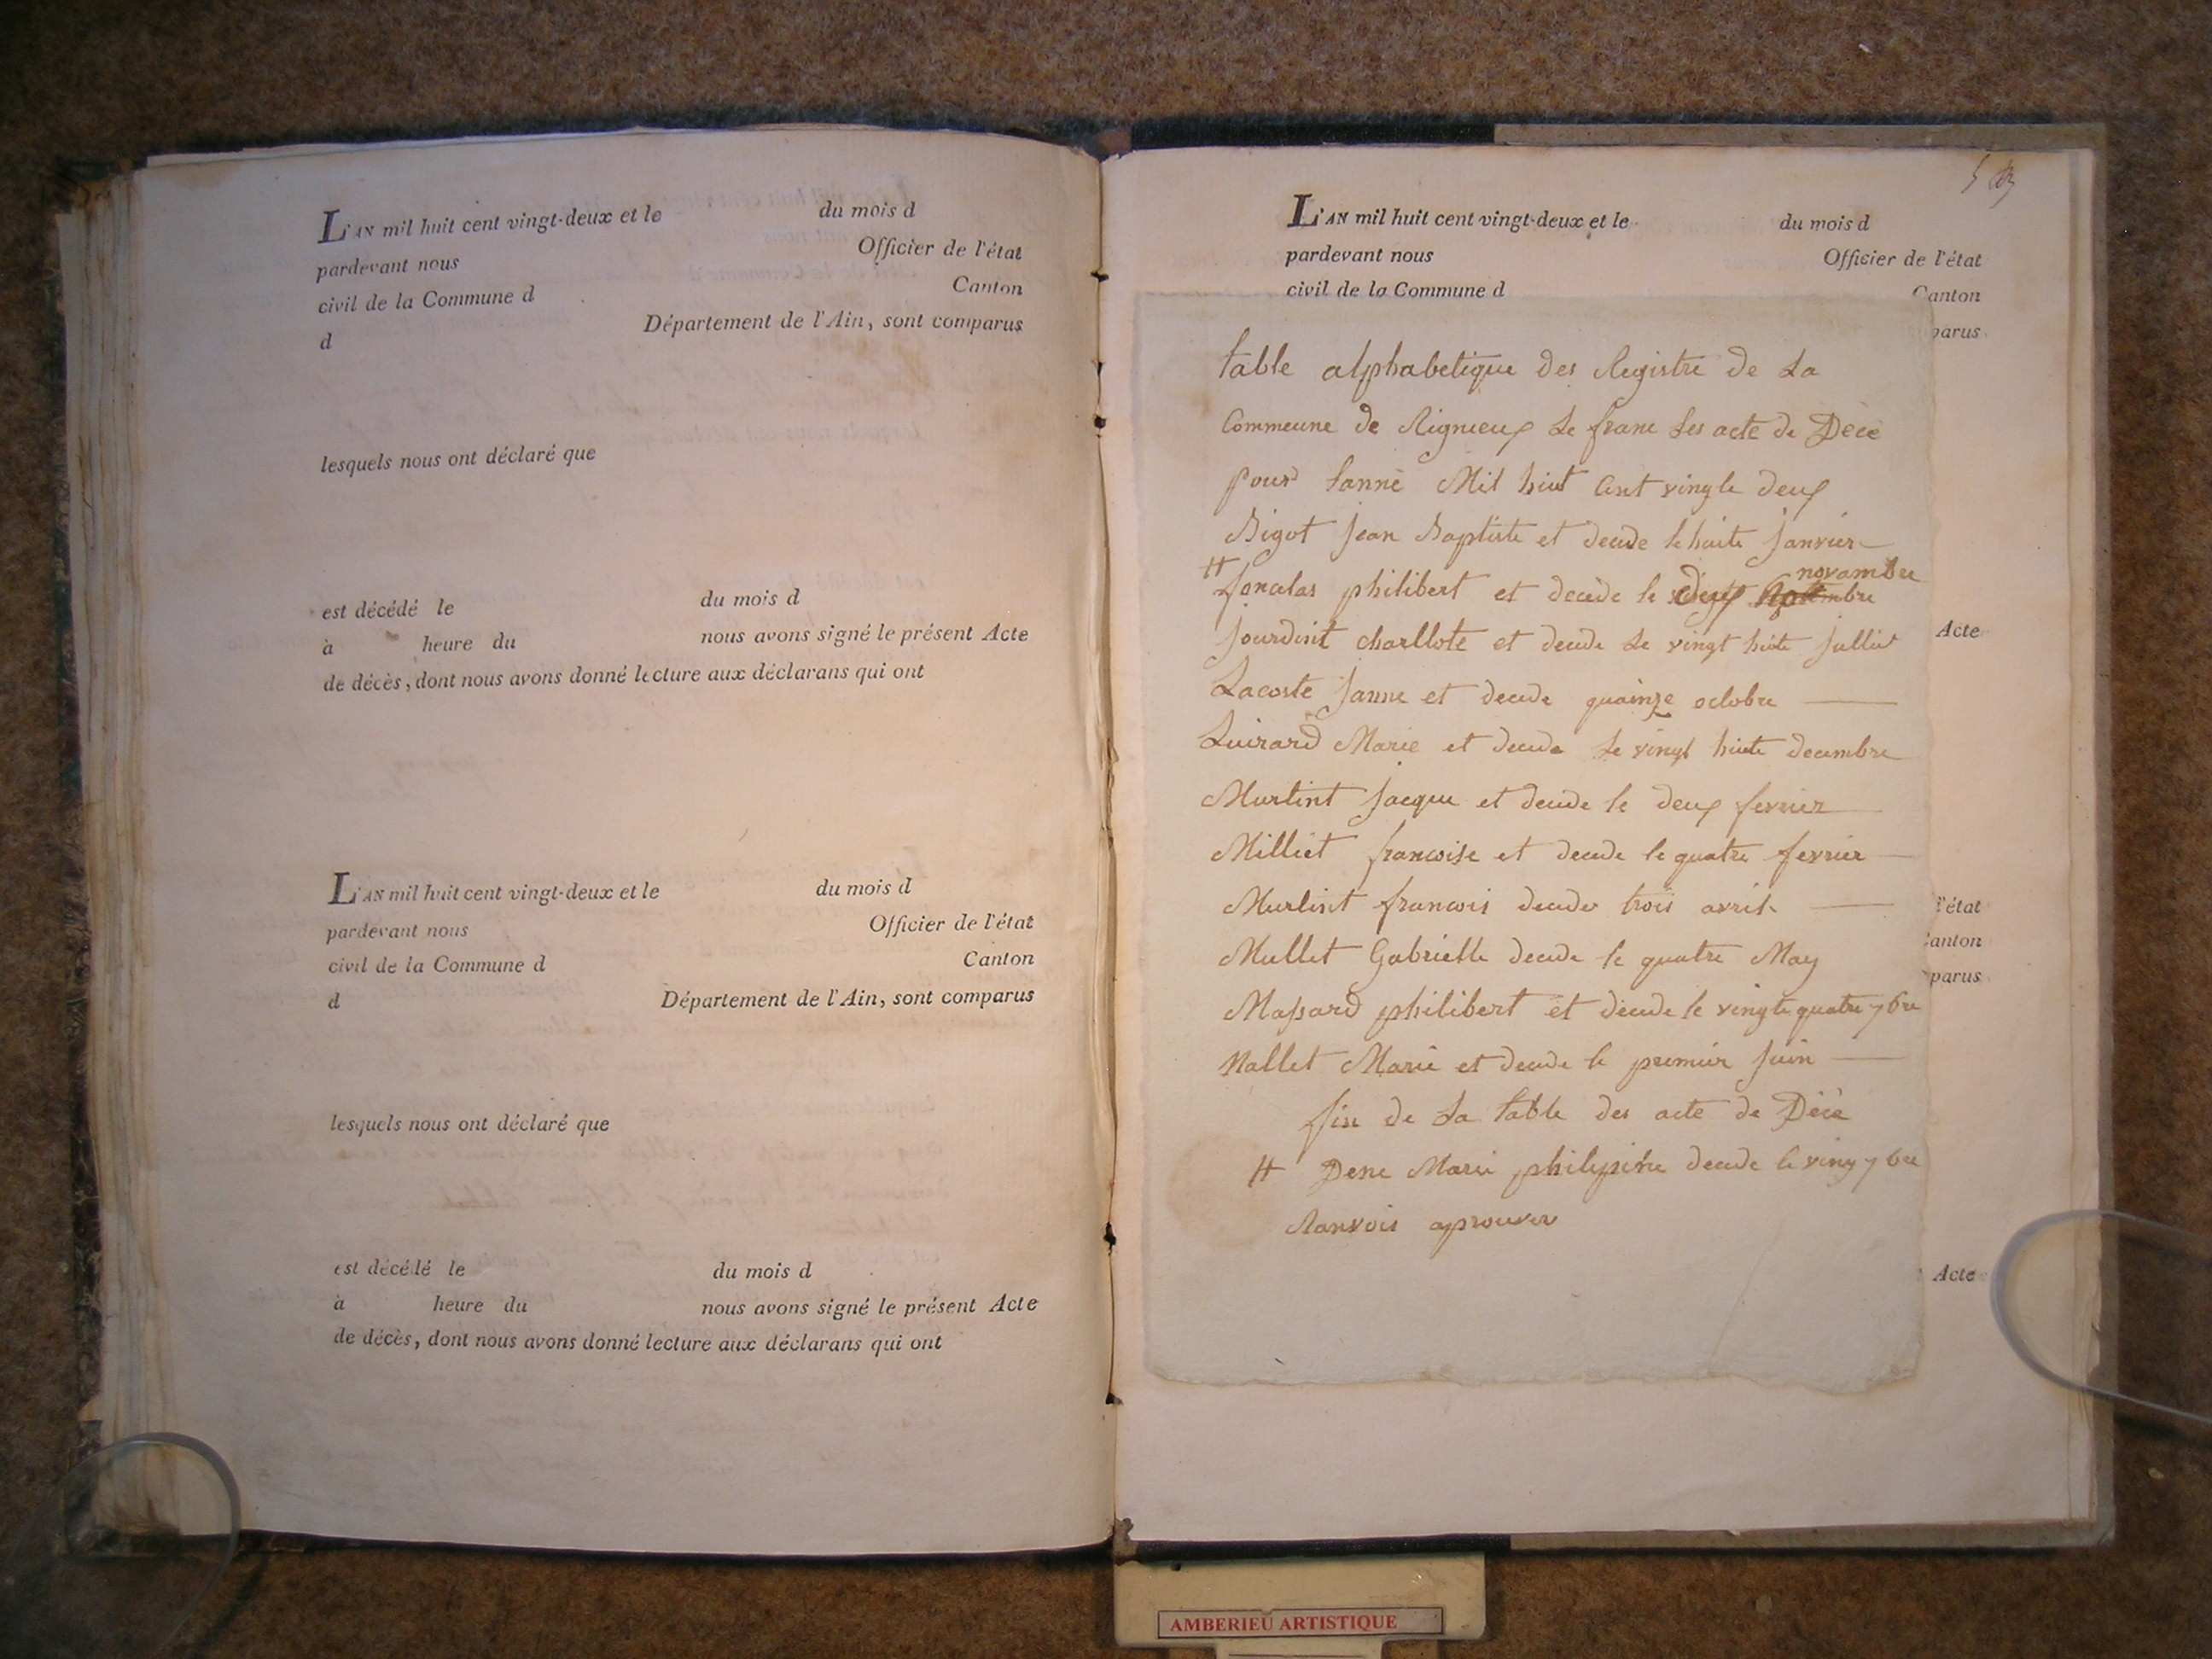 L'AN mil huit cent vingt-deux et le du mois d
pardevant nous Officier de l'état
civil de la Commune d Canton
d Département de l'Ain, sont comparus
lesquels nous ont déclaré que
est décédé le du mois d
à heure du nous avons signé le présent Acte
de décès, dont nous avons donné lecture aux déclarans qui ont
L'AN mil huit cent vingt-deux et le du mois d
pardevant nous Officier de l'état
civil de la Commune d Canton
d Département de l'Ain, sont comparus
lesquels nous ont déclaré que
est décédé le du mois d
à heure du nous avons signé le présent Acte
de décès, dont nous avons donné lecture aux déclarans qui ont
L'AN mil huit cent vingt-deux et le du mois d
pardevant nous Officier de l'état
civil de la Commune d Canton
parus
table alphabetique des Registre de La
Commeune de Rignieux Le franc Les acte de Décé
pour Lanné Mil huit Cent vingte deux
Bigot Jean Baptiste et decede le huite Janvier
H
novambre
fonclas philibert et decede le deux
Jourdint charllote et decede Le vingt huite Jullit
Acte
Lacoste Janne et decede quainze octobre
Luirard Marie et decede Le vingt huite decembre
Murtint Jacque et decede le deux fevrier
Milliet francoise et decede le quatre fevrier
Murlint francois decede trois avril
l'état
Mullet Gabrielle decede le quatre May
Canton
parus
Massard philibert et decede le vingte quatre 7bre
Nallet Marie et decede le premier Juin
fin de La table des acte de Décè
H Dene Marie philipine decede le ving 7bre
Ranvois aprouver
Acte
AMBERIEU ARTISTIQUE